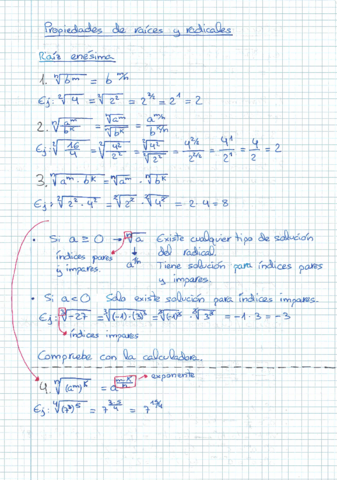 Propiedades de raíces y radicales
Raíz enésima
1. ⁿ√bᵐ = b^(m/n)
Ej: ²√4 = ²√2² = 2^(2/2) = 2¹ = 2
2. ⁿ√(aᵐ/bᵏ) = ⁿ√aᵐ / ⁿ√bᵏ = a^(m/n) / b^(k/n)
Ej: ²√(16/4) = ²√(4²/2²) = ²√4² / ²√2² = 4^(2/2) / 2^(2/2) = 4¹/2¹ = 4/2 = 2
3. ⁿ√(aᵐ · bᵏ) = ⁿ√aᵐ · ⁿ√bᵏ
Ej: ²√(2² · 4²) = ²√2² · ²√4² = 2 · 4 = 8
• Si a ≥ 0 → ⁿ√a Existe cualquier tipo de solución
índices pares ↓ del radical.
y impares. a^(1/n) Tiene solución para índices pares
y impares.
• Si a < 0 Solo existe solución para índices impares.
Ej: ³√-27 = ³√((-1) · (3)³) = ³√(-1)³ · ³√3³ = -1 · 3 = -3
índices impares
Compruebe con la calculadora.
4. ⁿ√(aᵐ)ᵏ = a^(m·k/n) → exponente
Ej: ⁴√(7³)⁵ = 7^(3·5/4) = 7^(15/4)